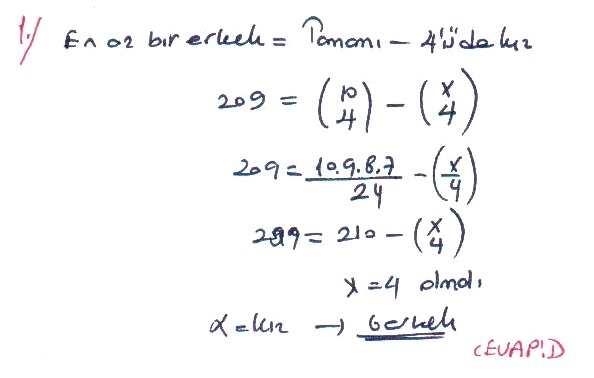 1.) En az bir erkek = Tamamı - 4'ü de kız
209 = (10 4) - (x 4)
209 = 10.9.8.7 / 24 - (x 4)
209 = 210 - (x 4)
x = 4 olmalı
4 = kız → 6 erkek
CEVAP: D